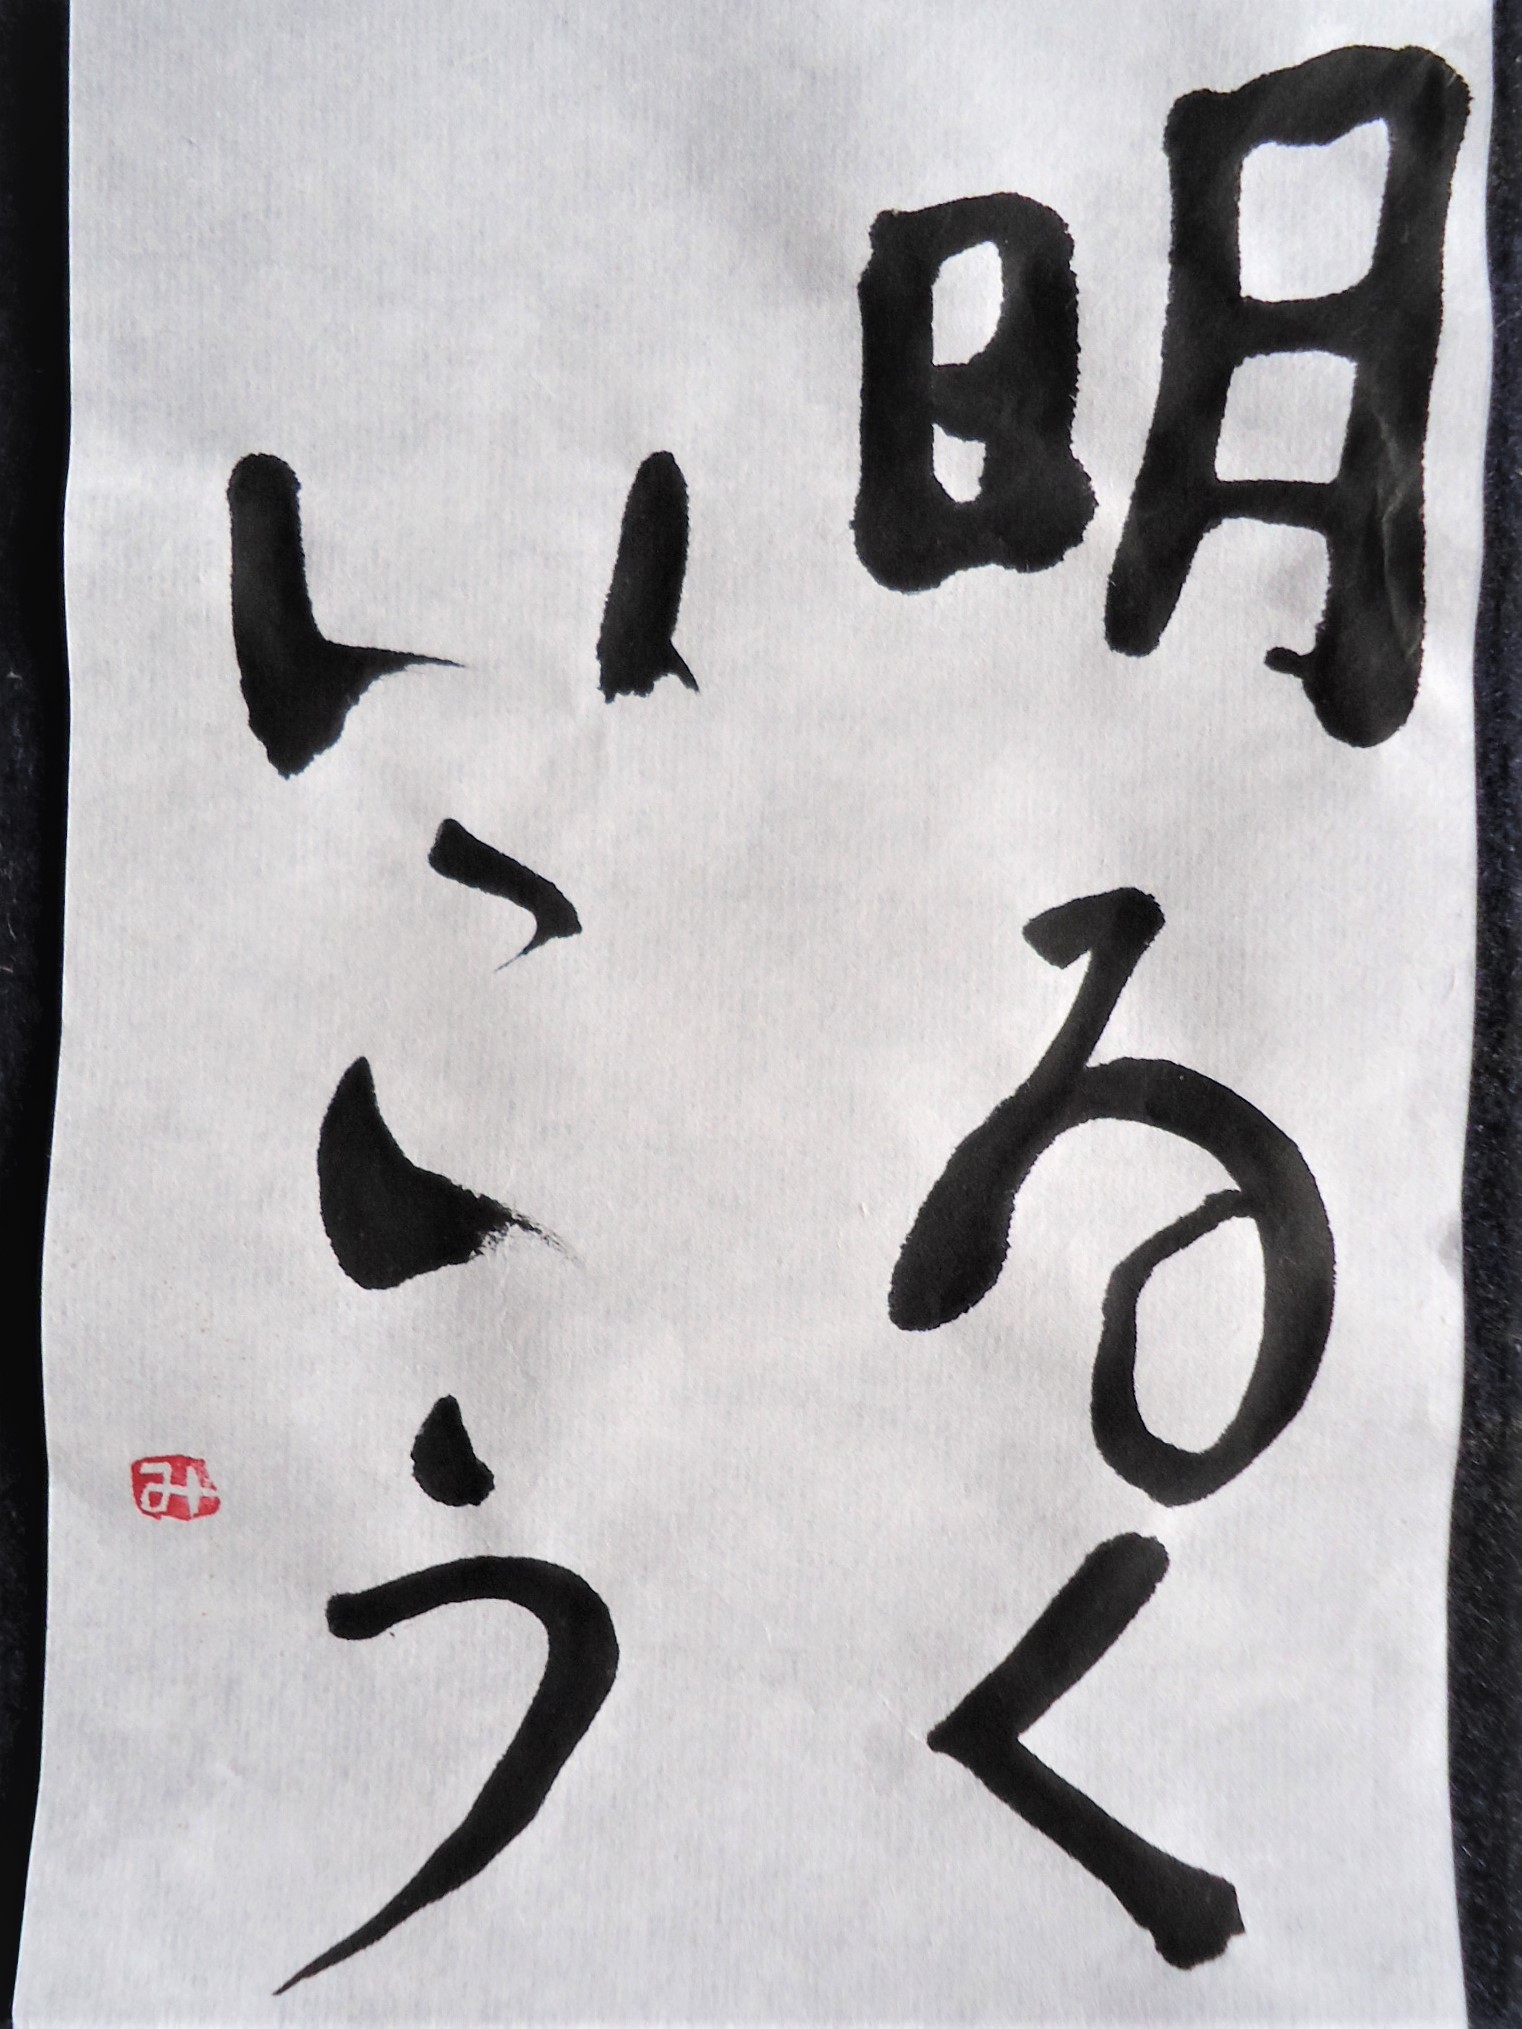 明るく
いこう
み